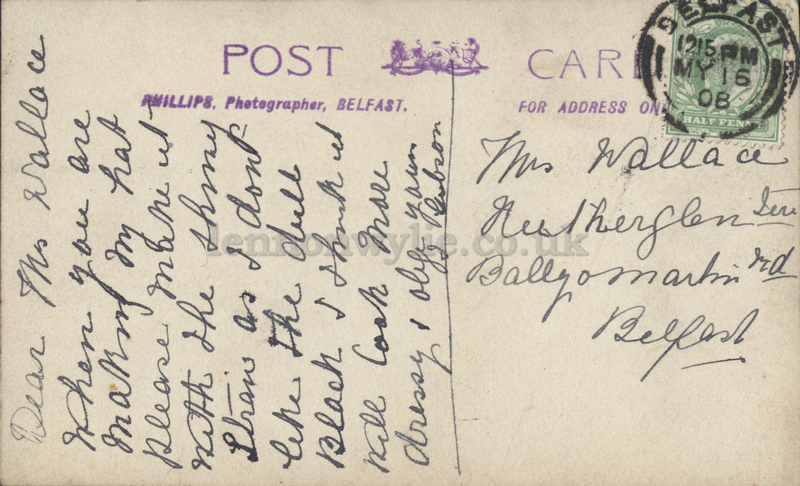 POST CARD
PHILLIPS, Photographer, BELFAST.
FOR ADDRESS ON
BELFAST
12 15 PM
MY 16
08
HALF PENN
Dear Mrs Wallace
when you are
making my hat
please make it
with the shiny
Straw as I dont
like the dull
Black I think it
will look more
dressy & oblige yours
Mrs Wallace
Rutherglen Terr
Ballygomartin rd
Belfast
lennonwylie.co.uk